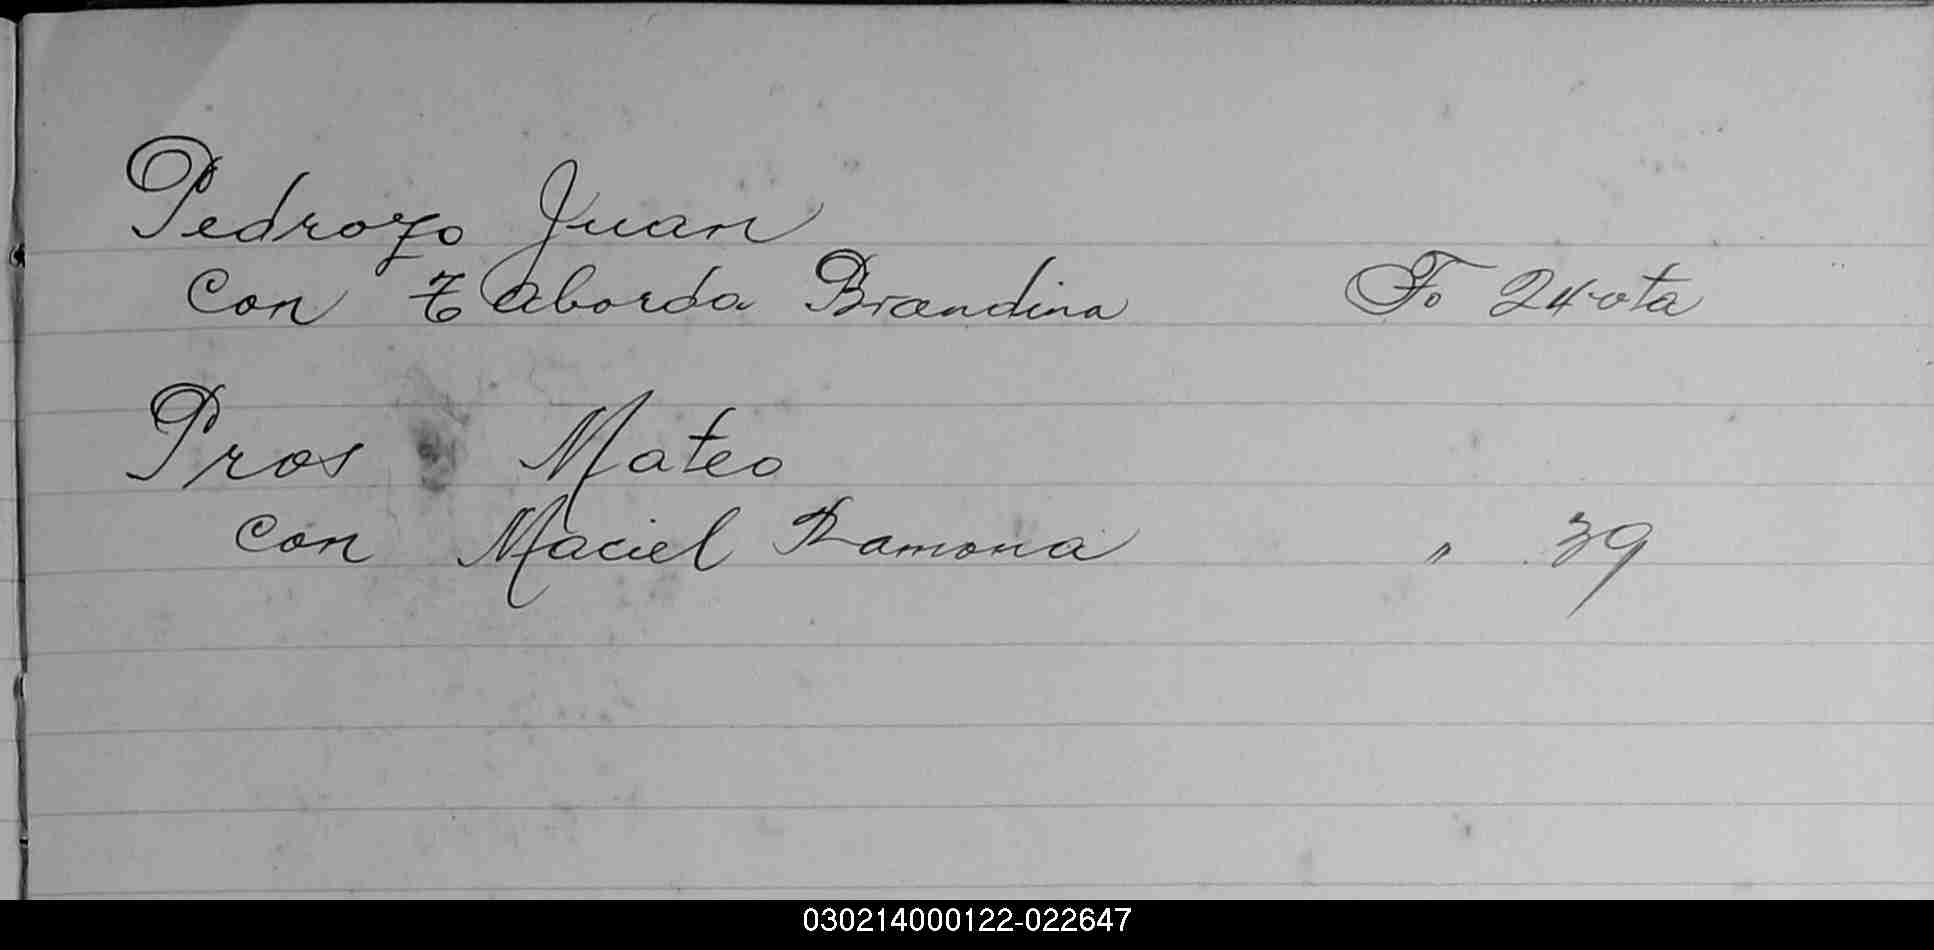 Pedrozo Juan
con Taborda Brandina Fo 24 vta
Pros Mateo
con Maciel Ramona " 39
030214000122-022647